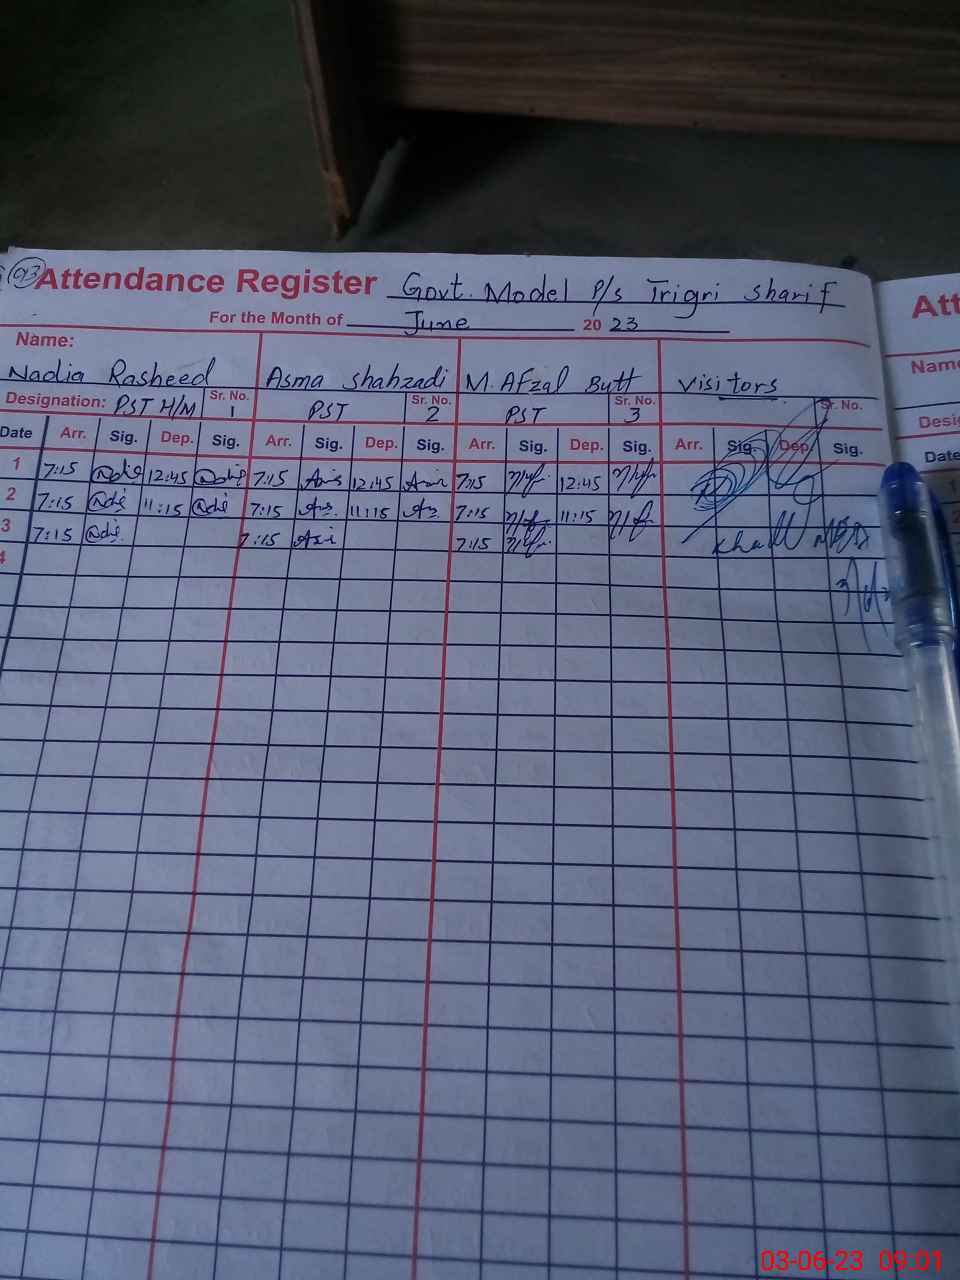 93 Attendance Register Govt. Model P/s Trigri Sharif
For the Month of June 2023
Name:
Nadia Rasheed Asma Shahzadi M. Afzal Butt Visitors
Designation: PST H/M Sr. No. 1 PST Sr. No. 2 PST Sr. No. 3 Sr. No.
Date Arr. Sig. Dep. Sig. Arr. Sig. Dep. Sig. Arr. Sig. Dep. Sig. Arr. Sig. Dep. Sig.
1 7:15 12:45 7:15 12:45 7:15 12:45
2 7:15 11:15 7:15 11:15 7:15 11:15
3 7:15 7:15 7:15
4
Att
Name
Desig
Date
1
2
03-06-23 09:01